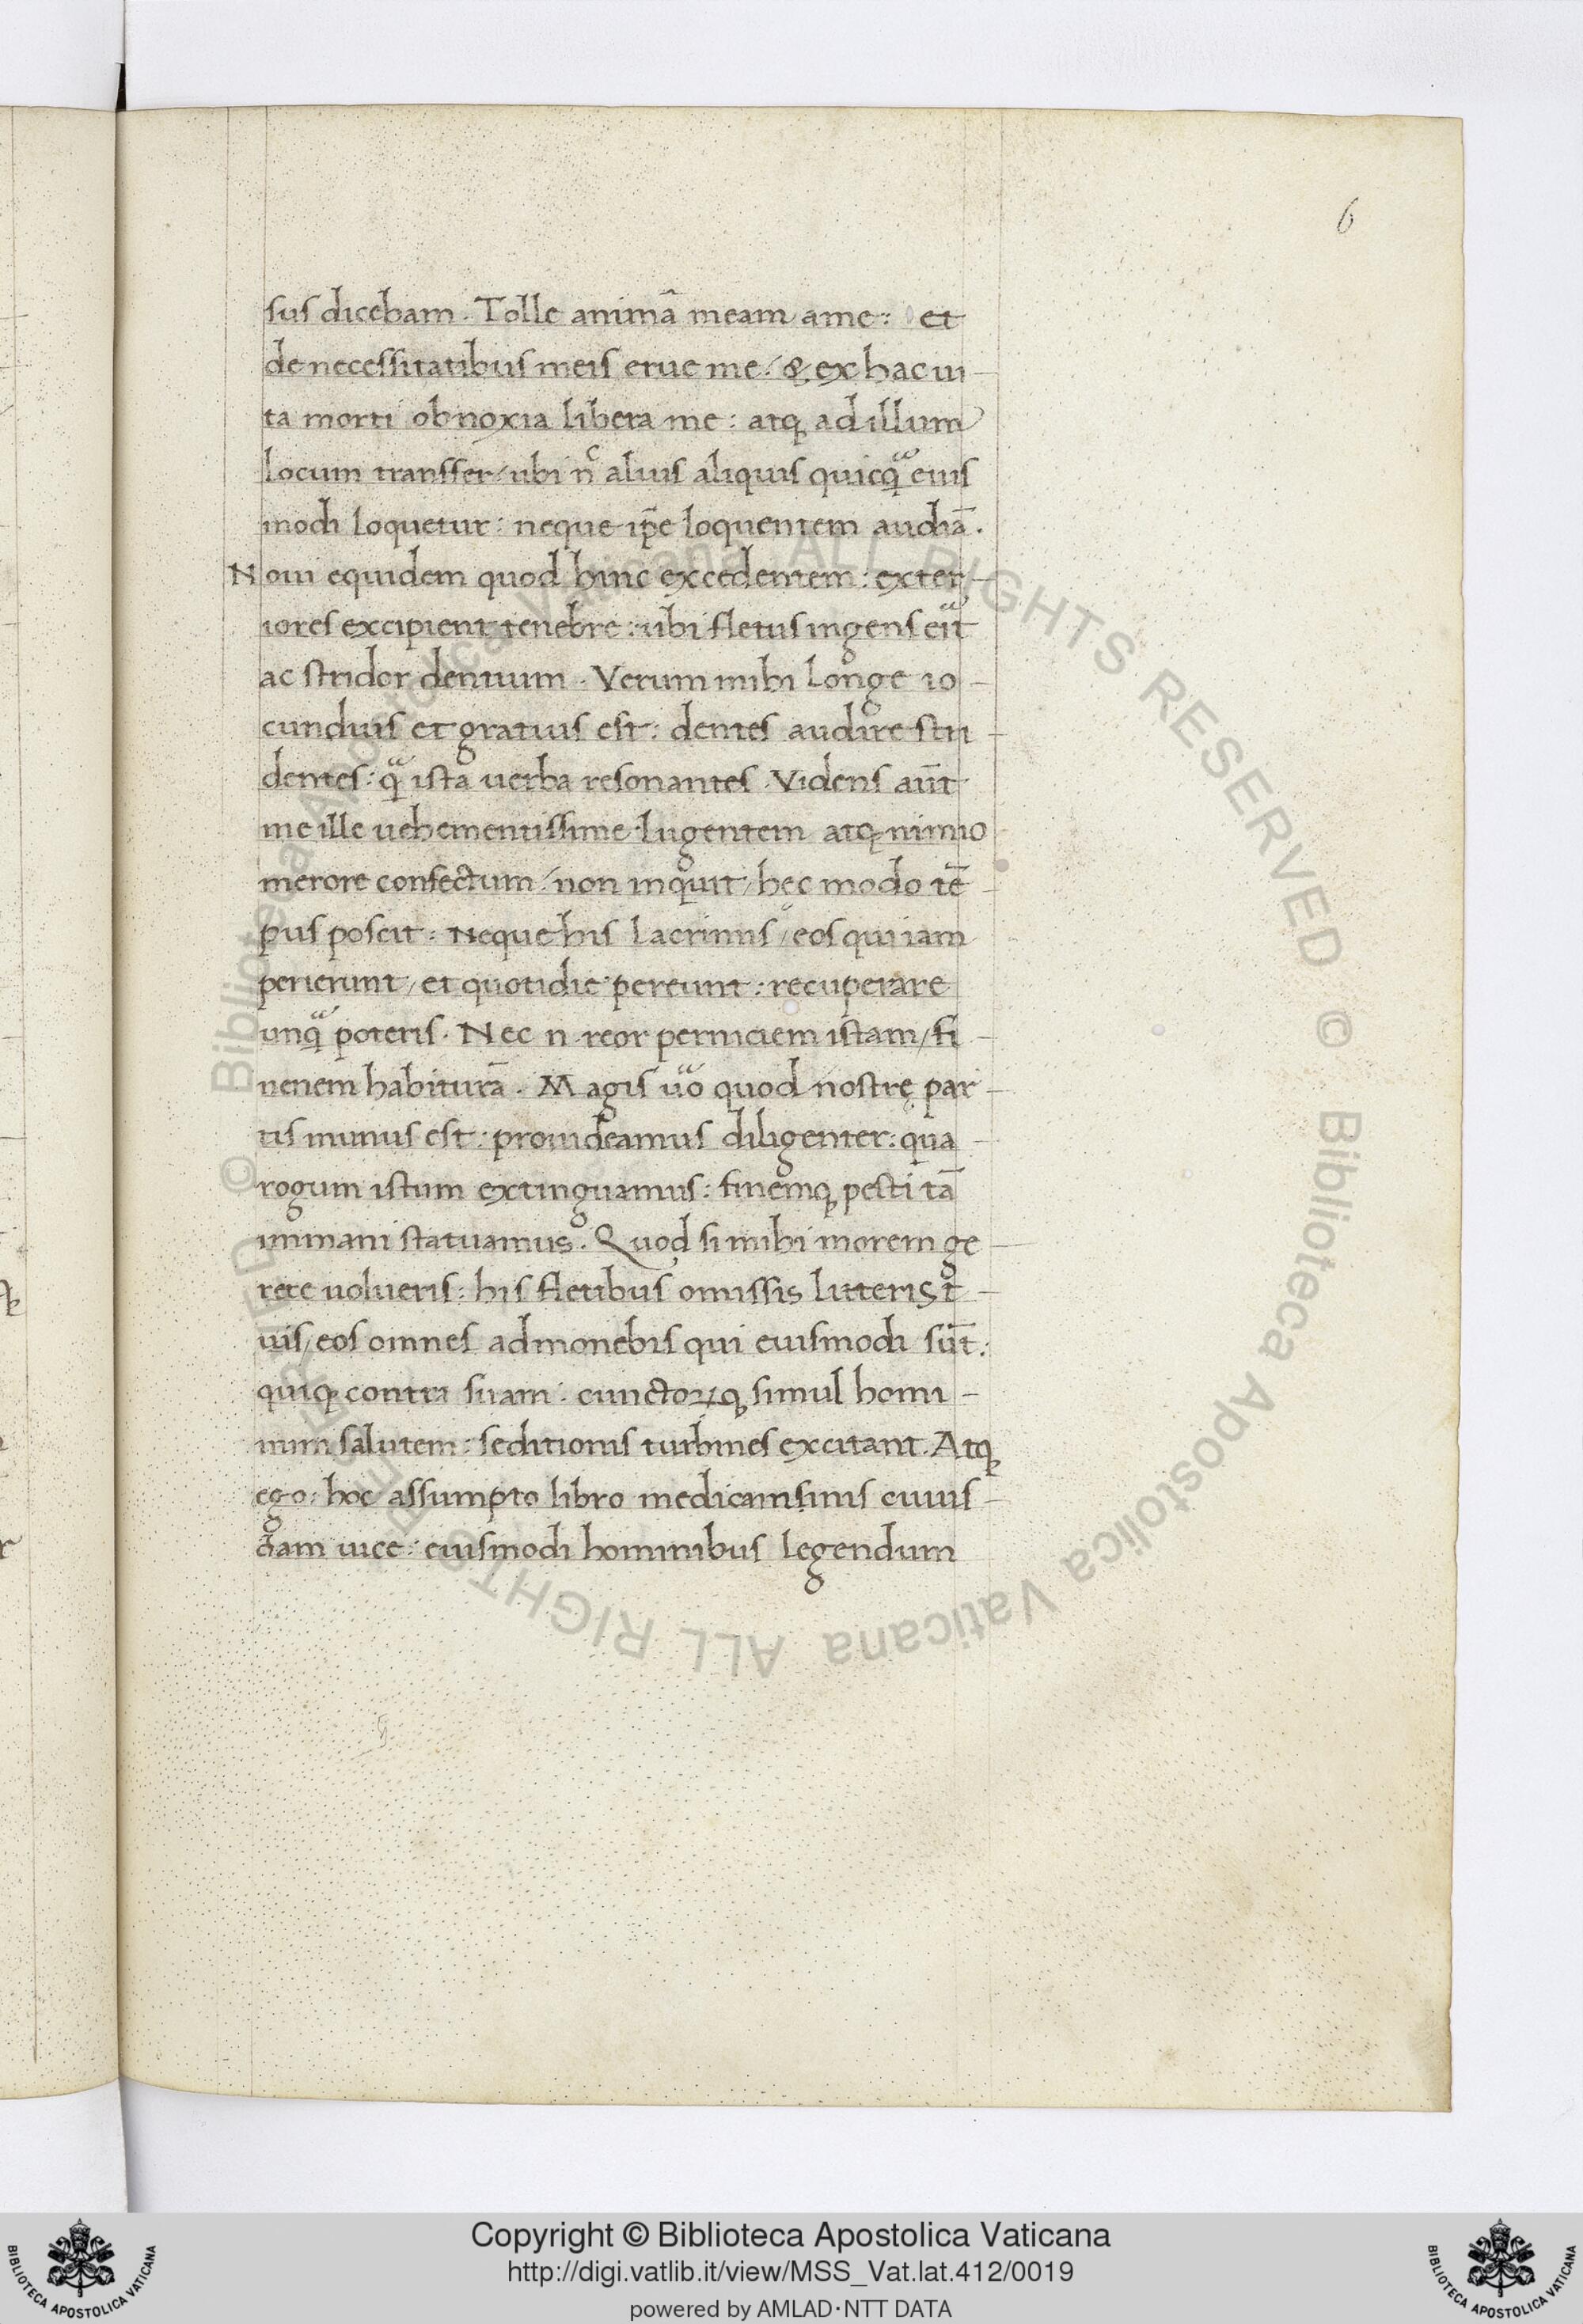 6
sus dicebam. Tolle animā meam ame: et
de necessitatibus meis erue me/ & ex hac ui-
ta morti obnoxia libera me: atq; ad illum
locum transfer/ ubi nͨ alius aliquis quicqᵃ̣ eius
modi loquetur: neque ip̄e loquentem audiā.
Noui equidem quod hinc excedentem: exter-
iores excipient tenebre: ubi fletus ingens eᵃit
ac stridor dentium. Verum mihi longe io-
cundius et gratius est: dentes audire stri-
dentes: qᵃ ista uerba resonantes. Videns aūt
me ille uehementissime lugentem atq; nimio
merore confectum/ non inquit/ hęc modo tē-
pus poscit: Neque his lacrimis/ eos qui iam
perierunt/ et quotidie pereunt: recuperare
unqᵃ poteris. Nec n reor perniciem istam/ fi-
nenem habiturā. Magis uᵃo quod nostrę par-
tis munus est: prouideamus diligenter: qua-
rogum istum extinguamus: finemq; pesti tā
immani statuamus. Quod si mihi morem ge-
rere uolueris: his fletibus omissis litteris t̄-
uis/ eos omnes admonebis qui eiusmodi sūt:
quiq; contra suam: cunctoꝝq; simul homi-
num salutem: seditionis turbines excitant. Atq;
ego: hoc assumpto libro medicaminis cuius-
dam uice: eiusmodi hominibus legendum
© Biblioteca Apostolica Vaticana ALL RIGHTS RESERVED
© Biblioteca Apostolica Vaticana ALL RIGHTS RESERVED
Copyright © Biblioteca Apostolica Vaticana
http://digi.vatlib.it/view/MSS_Vat.lat.412/0019
powered by AMLAD·NTT DATA
BIBLIOTECA APOSTOLICA VATICANA
BIBLIOTECA APOSTOLICA VATICANA